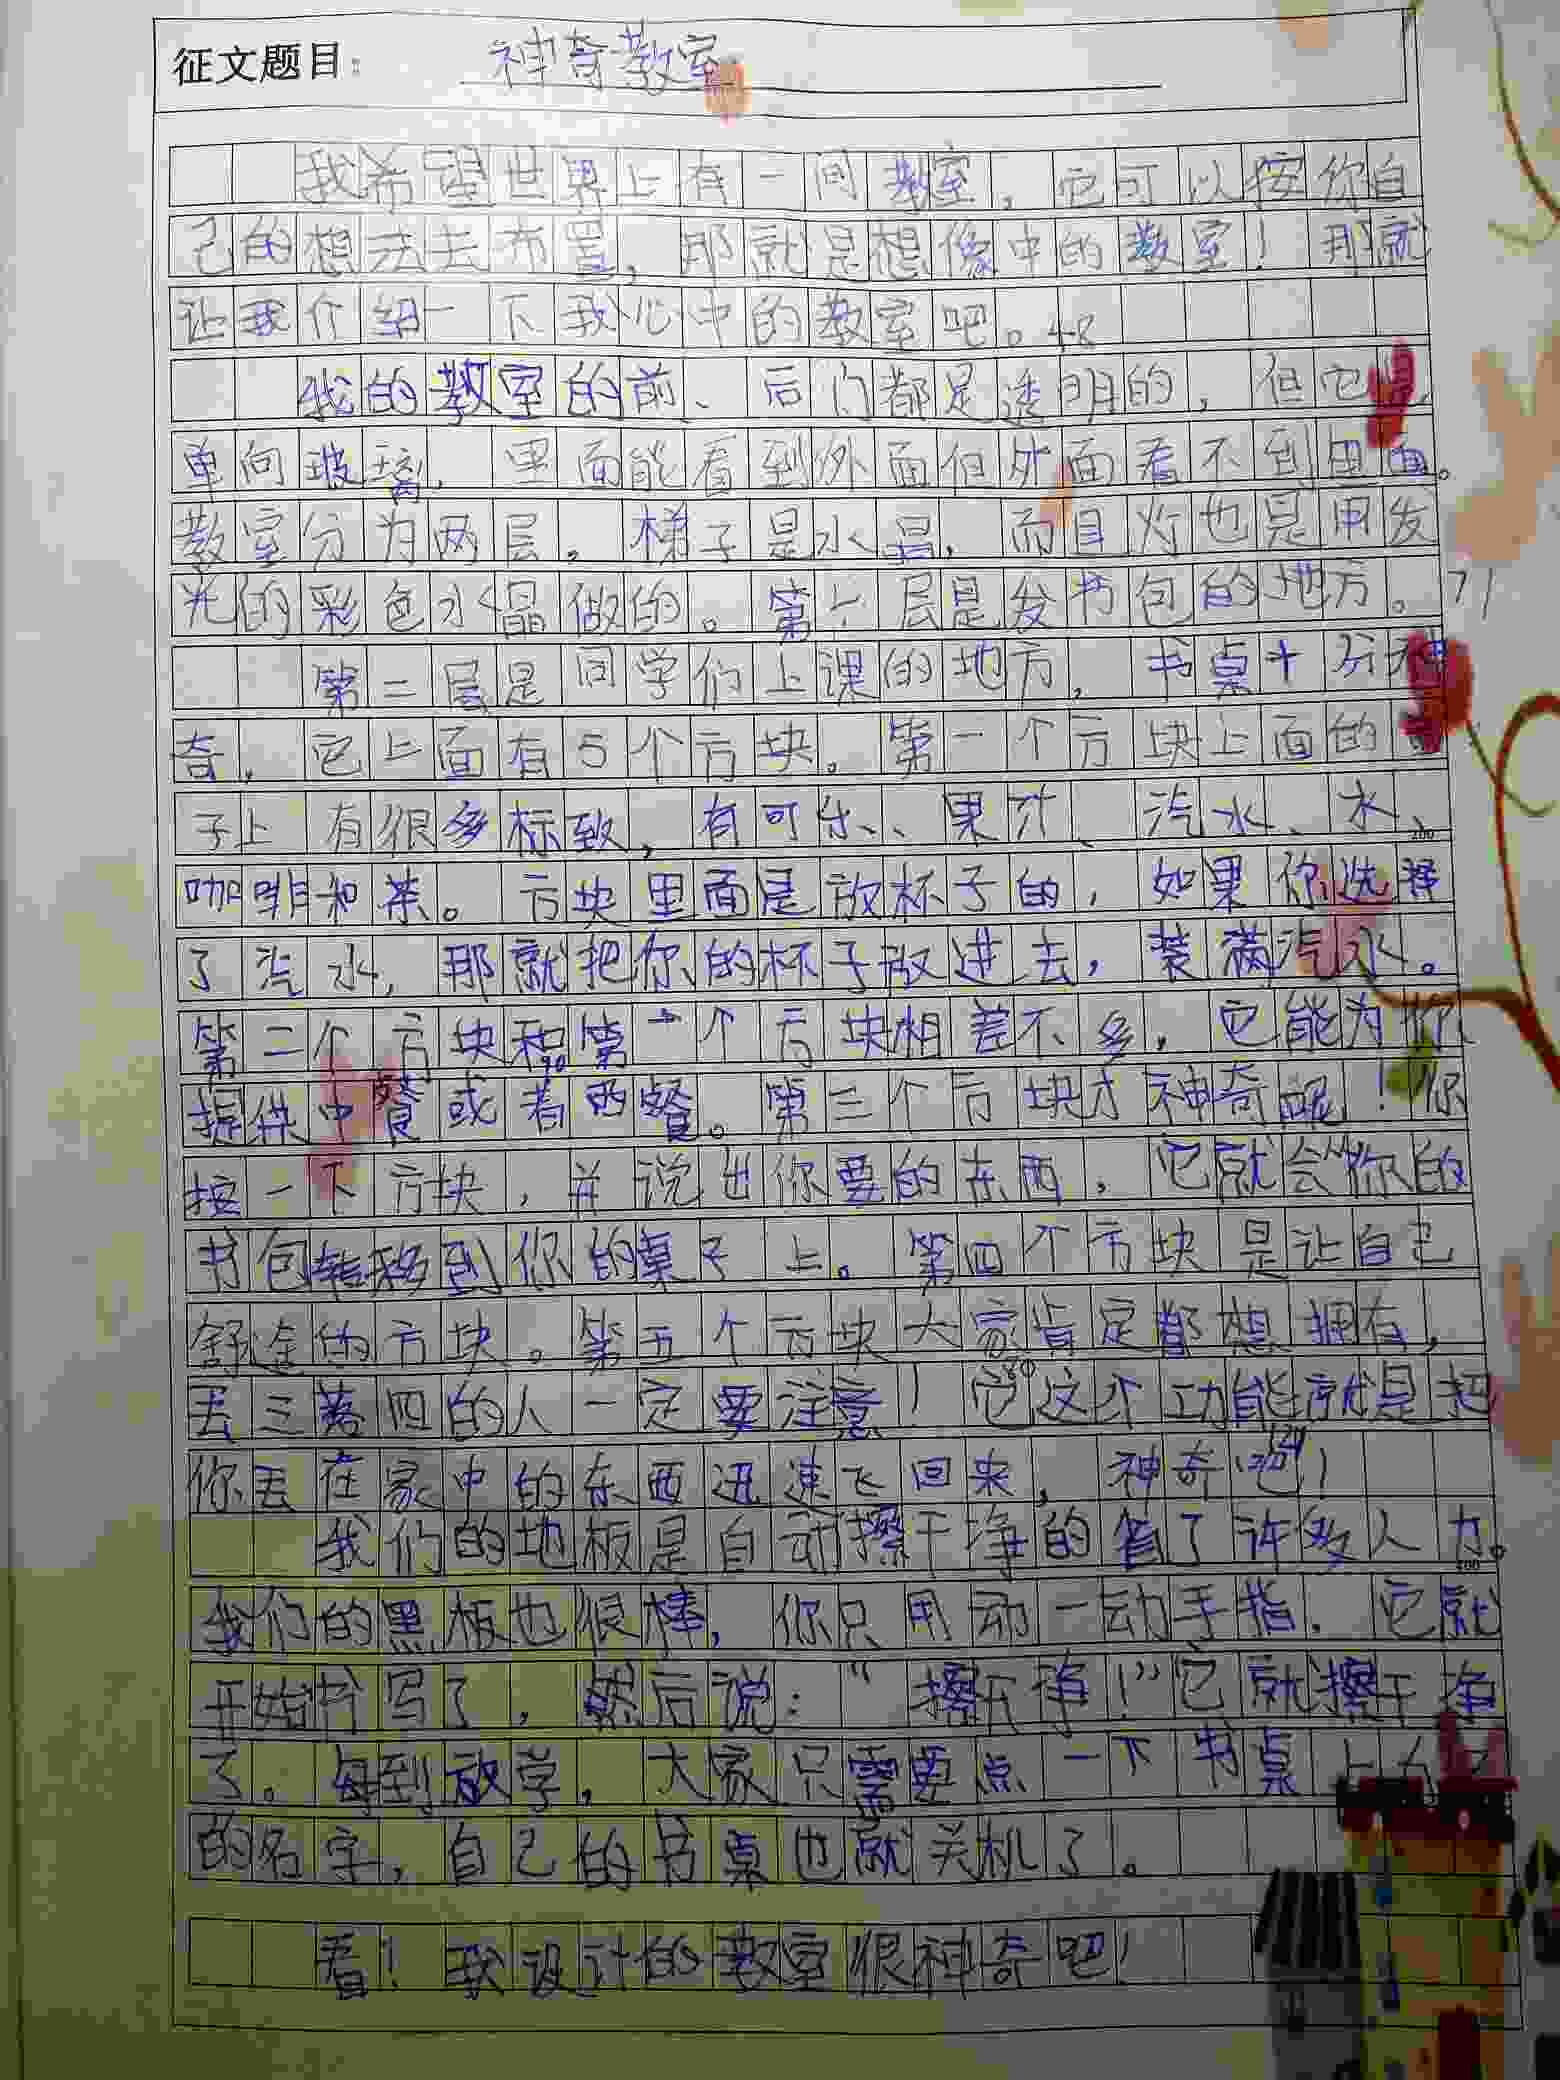 征文题目：神奇教室
我希望世界上有一间教室，它可以按你自
己的想法去布置，那就是想像中的教室！那就
让我介绍一下我心中的教室吧。48
我的教室的前、后门都是透明的，但它是
单向玻璃，里面能看到外面但外面看不到里面。
教室分为两层，梯子是水晶，而且灯也是用发
光的彩色水晶做的。第一层是发书包的地方。71
第二层是同学们上课的地方，书桌十分神
奇，它上面有5个方块。第一个方块上面的
子上有很多标致，有可乐、果汁、汽水、水、
200
咖啡和茶。方块里面是放杯子的，如果你选择
了汽水，那就把你的杯子放进去，装满汽水。
第二个方块和第一个方块相差不多，它能为你
90
提供中餐或者西餐。第三个方块才神奇呢！你
按一下方块，并说出你要的东西，它就会从你的
书包转移到你的桌子上。第四个方块是让自己
舒适的方块。第五个方块大家肯定都想拥有，
80
丢三落四的人一定要注意！它这个功能就是把
你丢在家中的东西迅速飞回来，神奇吧！
我们的地板是自动擦干净的省了许多人力。
400
我们的黑板也很棒，你只用动一动手指，它就
开始书写了，然后说：“擦干净！”它就擦干净
了。每到放学，大家只需要点一下书桌上
的名字，自己的书桌也就关机了。
看！我设计的教室很神奇吧！